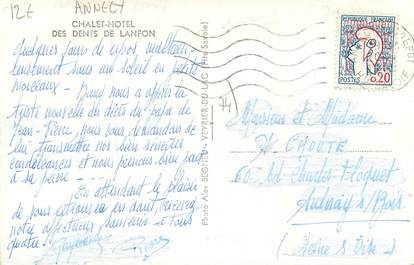 12€ ANNECY
CHALET-HOTEL
DES DENTS DE LANFON
Quelques jours de repos, malheu-
reusement sans un soleil en petits
morceaux - Dany nous a appris la
triste nouvelle du décès du papa de
Jean-Pierre, nous vous demandons de
lui transmettre nos bien sincères
condoléances et nous prenons bien part
à sa peine - - -
En attendant le plaisir
de vous retrouver en dant, recevez
notre affectueux souvenir à tous
quatre.
Photo Alex BEGHELLI - VEYRIER-DU-LAC (Hte Savoie)
RÉPUBLIQUE FRANÇAISE
POSTES 0,20
Monsieur et Madame
CHOUTE
60 Bd Charles Floquet
Aulnay s/Bois
(Seine & Oise)